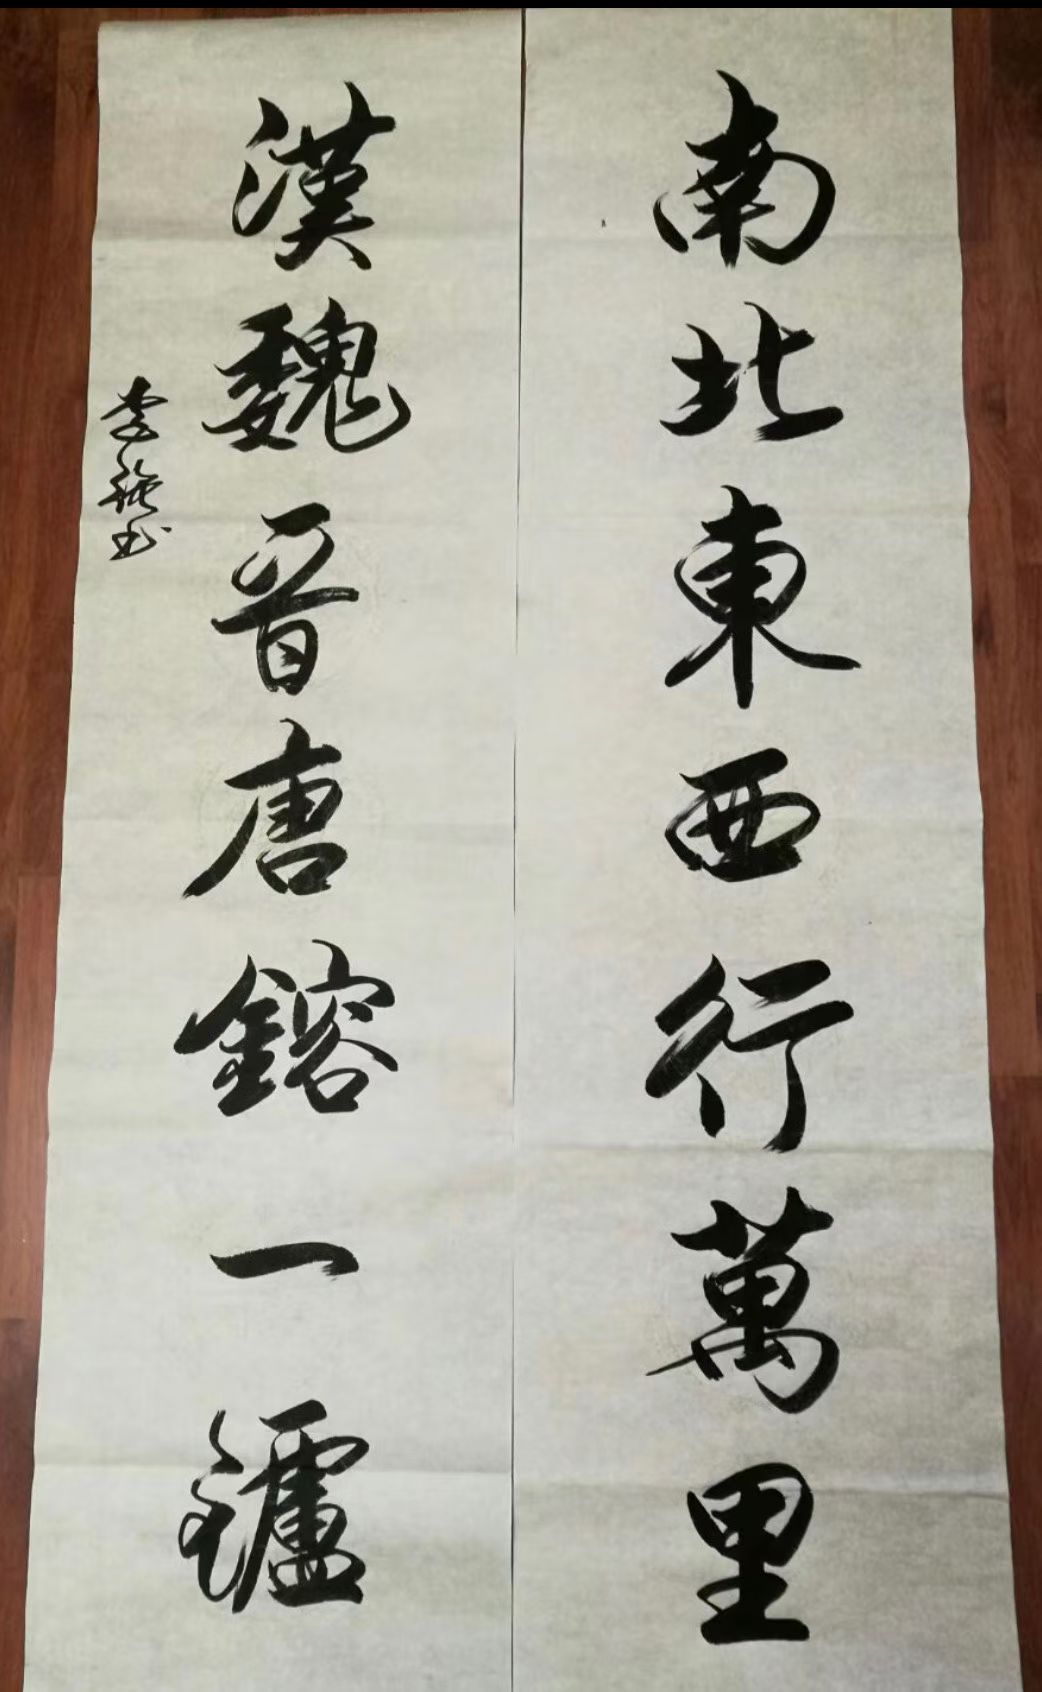 南北東西行萬里
漢魏晉唐鎔一鑪
李 書